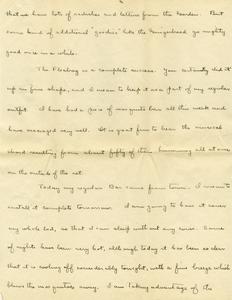 that we have lots of radishes and lettuce from the garden. But
some kind of additional "goodies" like the Gingerbread go mighty
good once in a while.
The Fleabag is a complete success. You certainly did it
up in fine shape, and I mean to keep it as a part of my regular
outfit. I have had a piece of mosquito bar all this week and
have managed very well. It so great fun to hear the musical
chord resulting from about fifty of them humming all at once
on the outside of the net.
Today my regular Bar came from town. I mean to
install it complete tomorrow. I am going to have it cover
my whole bed, so that I can sleep without any noise. Some
of nights have been very hot, although today it has been so clear
that it is cooling off considerably tonight, with a fine breeze which
blows the mosquitoes away. I am taking advantage of the